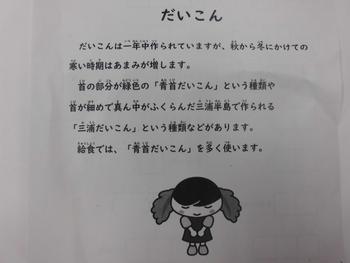 だいこん
だいこんは一年中作られていますが、秋から冬にかけての
寒い時期はあまみが増します。
首の部分が緑色の「青首だいこん」という種類や
首が細めで真ん中がふくらんだ三浦半島で作られる
「三浦だいこん」という種類などがあります。
給食では、「青首だいこん」を多く使います。